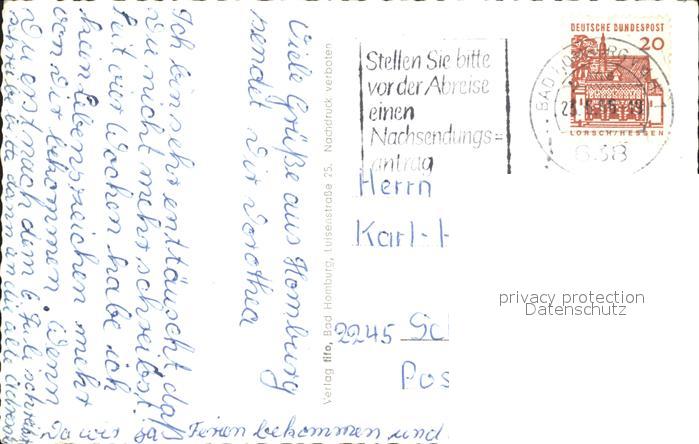 Viele Grüße aus Homburg
sendet dir Dorothea
Ich bin sehr enttäuscht daß
du nicht mehr schreibst.
Seit vier Wochen habe ich
kein Lebenszeichen mehr
von dir bekommen. Wenn
du erst nach dem 6. Juli schreibst
schreibe bitte dann an die alte
Da wir ja Ferien bekommen und
Verlag fifo, Bad Homburg, Luisenstraße 25. Nachdruck verboten
Stellen Sie bitte
vor der Abreise
einen
Nachsendungs=
antrag
DEUTSCHE BUNDESPOST
20
LORSCH/HESSEN
BAD HOMBURG
638
Herrn
Karl-H
2245 Sc
Pos
privacy protection
Datenschutz